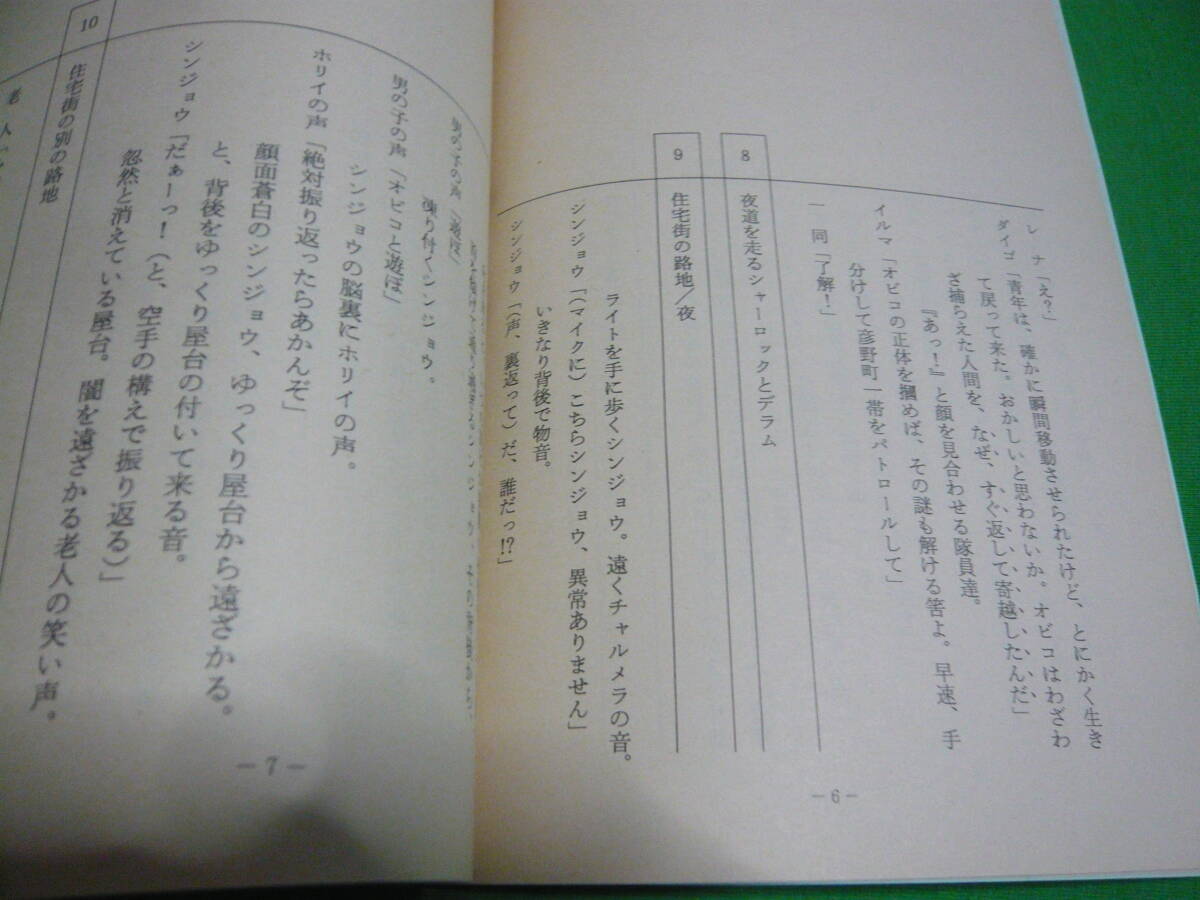 レ　ナ「え?」
ダイゴ「青年は、確かに瞬間移動させられたけど、とにかく生き
て戻って来た。おかしいと思わないか。オビコはわざわ
ざ捕らえた人間を、なぜ、すぐ返して寄越したんだ」
『あっ!』と顔を見合わせる隊員達。
イルマ「オビコの正体を摑めば、その謎も解ける筈よ。早速、手
分けして彦野町一帯をパトロールして」
一　同「了解!」
8
夜道を走るシャーロックとデラム
9
住宅街の路地/夜
ライトを手に歩くシンジョウ。遠くチャルメラの音。
シンジョウ「(マイクに)こちらシンジョウ、異常ありません」
いきなり背後で物音。
シンジョウ「(声、裏返って)だ、誰だっ!?」
—6—
男の子の声「遊ぼ」
凍り付くシンジョウ。
男の子の声「オビコと遊ぼ」
シンジョウの脳裏にホリイの声。
ホリイの声「絶対振り返ったらあかんぞ」
顔面蒼白のシンジョウ、ゆっくり屋台から遠ざかる。
と、背後をゆっくり屋台の付いて来る音。
シンジョウ「だぁーっ!(と、空手の構えで振り返る)」
忽然と消えている屋台。闇を遠ざかる老人の笑い声。
10
住宅街の別の路地
老　人
—7—